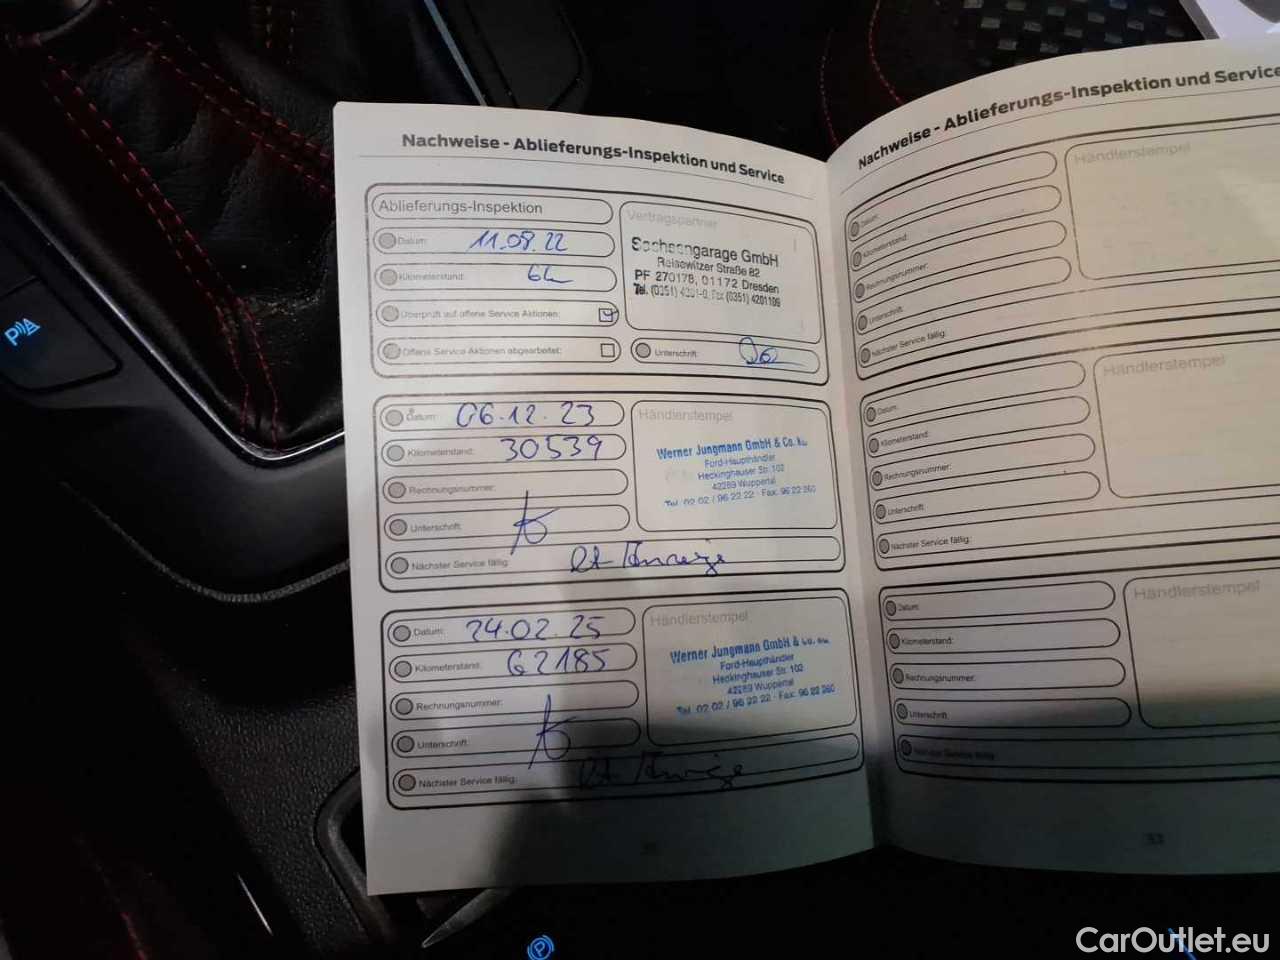 Nachweise - Ablieferungs-Inspektion und Service
Ablieferungs-Inspektion
Datum: 11.08.22
Kilometerstand:
Überprüft auf offene Service Aktionen:
Offene Service Aktionen abgearbeitet:
Vertragspartner
Sachsengarage GmbH
Reisewitzer Straße 82
PF 270178, 01172 Dresden
Tel. (0351) 4201-0, Fax (0351) 4201109
Unterschrift:
Datum: 06.12.23
Kilometerstand: 30539
Rechnungsnummer:
Unterschrift:
Nächster Service fällig: lt Anzeige
Händlerstempel
Werner Jungmann GmbH & Co. KG
Ford-Haupthändler
Heckinghauser Str. 102
42289 Wuppertal
Tel. 02 02 / 96 22 22 · Fax: 96 22 260
Datum: 24.02.25
Kilometerstand: 62185
Rechnungsnummer:
Unterschrift:
Nächster Service fällig: lt Anzeige
Händlerstempel
Werner Jungmann GmbH & Co. KG
Ford-Haupthändler
Heckinghauser Str. 102
42289 Wuppertal
Tel. 02 02 / 96 22 22 · Fax: 96 22 260
Nachweise - Ablieferungs-Inspektion und Service
Datum:
Kilometerstand:
Rechnungsnummer:
Unterschrift:
Nächster Service fällig:
Händlerstempel
Datum:
Kilometerstand:
Rechnungsnummer:
Unterschrift:
Nächster Service fällig:
Händlerstempel
Datum:
Kilometerstand:
Rechnungsnummer:
Unterschrift:
Nächster Service fällig:
Händlerstempel
53
P
P
CarOutlet.eu